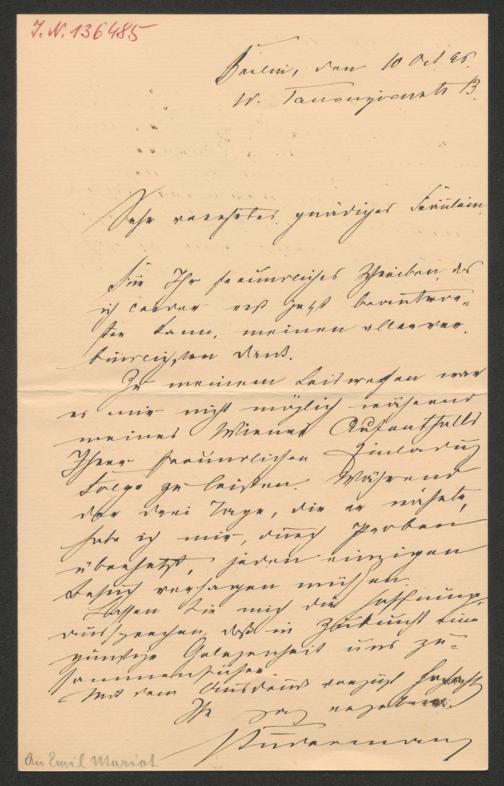 J. N. 136485
Berlin, den 10 Oct 96.
W. Tauenzienstr. 13.
Sehr verehrtes, gnädiges Fräulein
Für Ihr freundliches Schreiben, das
ich leider erst jetzt beantwor-
ten kann, meinen allerver-
bindlichsten Dank.
Zu meinem Leidwesen war
es mir nicht möglich während
meines Wiener Aufenthalts
Ihrer freundlichen Einladung
Folge zu leisten. Während
der drei Tage, die er währte,
habe ich mir, durch Proben
überhetzt, jeden einzigen
Besuch versagen müssen.
Lassen Sie mich die Hoffnung
aussprechen, daß in Zukunft eine
günstige Gelegenheit uns zu-
sammenführe.
Mit dem Ausdruck vorzügl.
Ihr sehr ergebener
Sudermann
An Emil Mariot